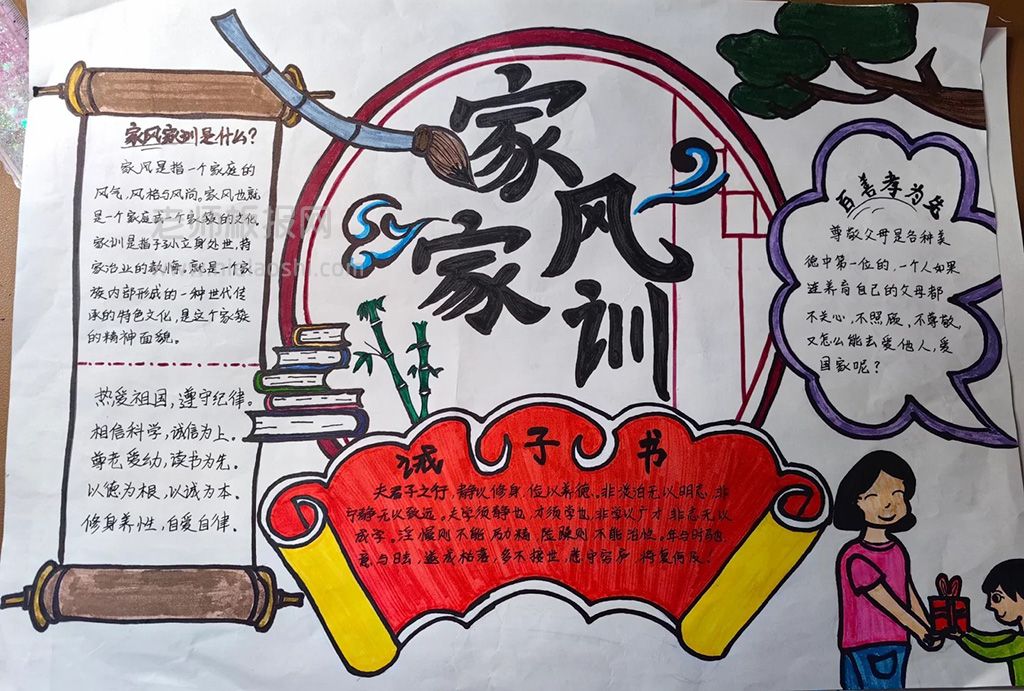 家风家训是什么?
家风是指一个家庭的
风气、风格与风尚。家风也就
是一个家庭或一个家族的文化
家训是指子孙立身处世、持
家治业的教悔,就是一个家
族内部形成的一种世代传
承的特色文化,是这个家簇
的精神面貌。
热爱祖国,遵守纪律。
相信科学,诚信为上。
尊老爱幼,读书为先。
以德为根,以诚为本。
修身养性,自爱自律。
家风
家训
诫子书
夫君子之行,静以修身,俭以养德。非淡泊无以明志,非
宁静无以致远。夫学须静也,才须学也,非学以广才,非志无以
成学。淫慢则不能励精,险躁则不能治性。年与时驰
意与日去,遂成枯落,多不接世,悲守穷庐,将复何及!
百善孝为先
尊敬父母是各种美
德中第一位的,一个人如果
连养育自己的父母都
不关心,不照顾,不尊敬,
又怎么能去爱他人,爱
国家呢?
老师板报网